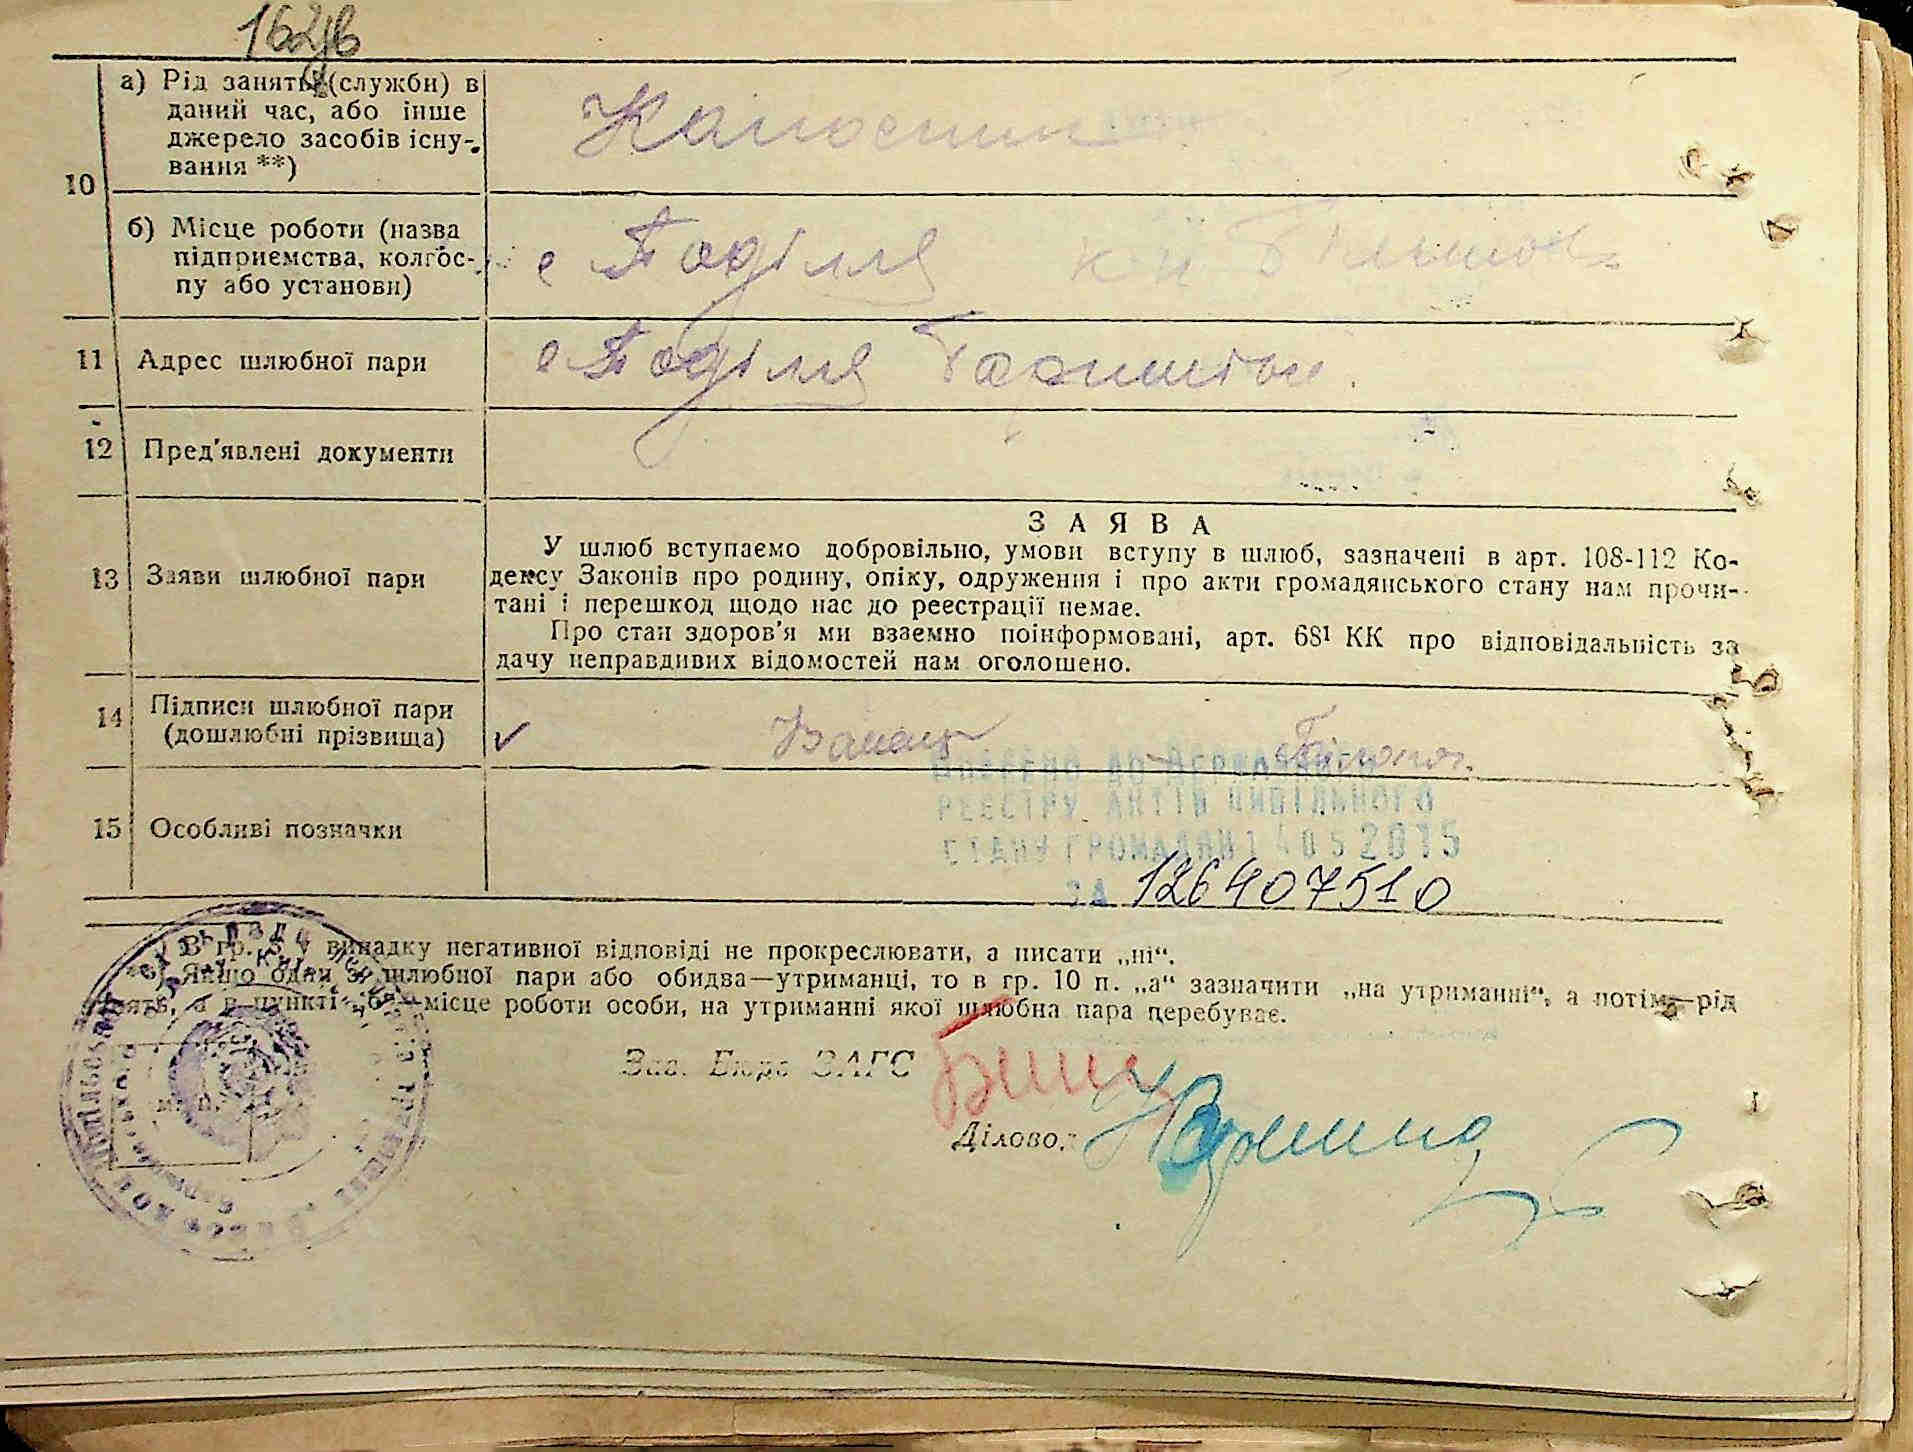 162
10
а) Рід занять (служби) в
даний час, або інше
джерело засобів існу-
вання **)
б) Місце роботи (назва
підприємства, колгос-
пу або установи)
с Поділля
11 Адрес шлюбної пари
с Поділля
12 Пред'явлені документи
13 Заяви шлюбної пари
ЗАЯВА
У шлюб вступаємо добровільно, умови вступу в шлюб, зазначені в арт. 108-112 Ко-
дексу Законів про родину, опіку, одруження і про акти громадянського стану нам прочи-
тані і перешкод щодо нас до реєстрації немає.
Про стан здоров'я ми взаємно поінформовані, арт. 68¹ КК про відповідальність за
дачу неправдивих відомостей нам оголошено.
14 Підписи шлюбної пари
(дошлюбні прізвища)
15 Особливі позначки
ДО ДЕРЖАВНОГО
РЕЄСТРУ АКТІВ ЦИВІЛЬНОГО
СТАНУ ГРОМАДЯН 14 05 2015
ЗА 126407510
В гр. 5 у випадку негативної відповіді не прокреслювати, а писати „ні“.
Якщо один з шлюбної пари або обидва—утриманці, то в гр. 10 п. „а“ зазначити „на утриманні“, а потім—рід
занять, а в пункті „б“—місце роботи особи, на утриманні якої шлюбна пара перебуває.
Зав. Бюро ЗАГС
Діловод